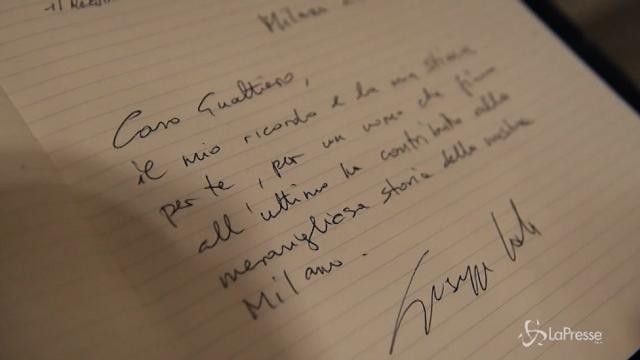 Milano
Caro Gualtiero,
il mio ricordo e la mia stima
per te, per un uomo che fino
all'ultimo ha contributo alla
meravigliosa storia della nostra
Milano.
LaPresse